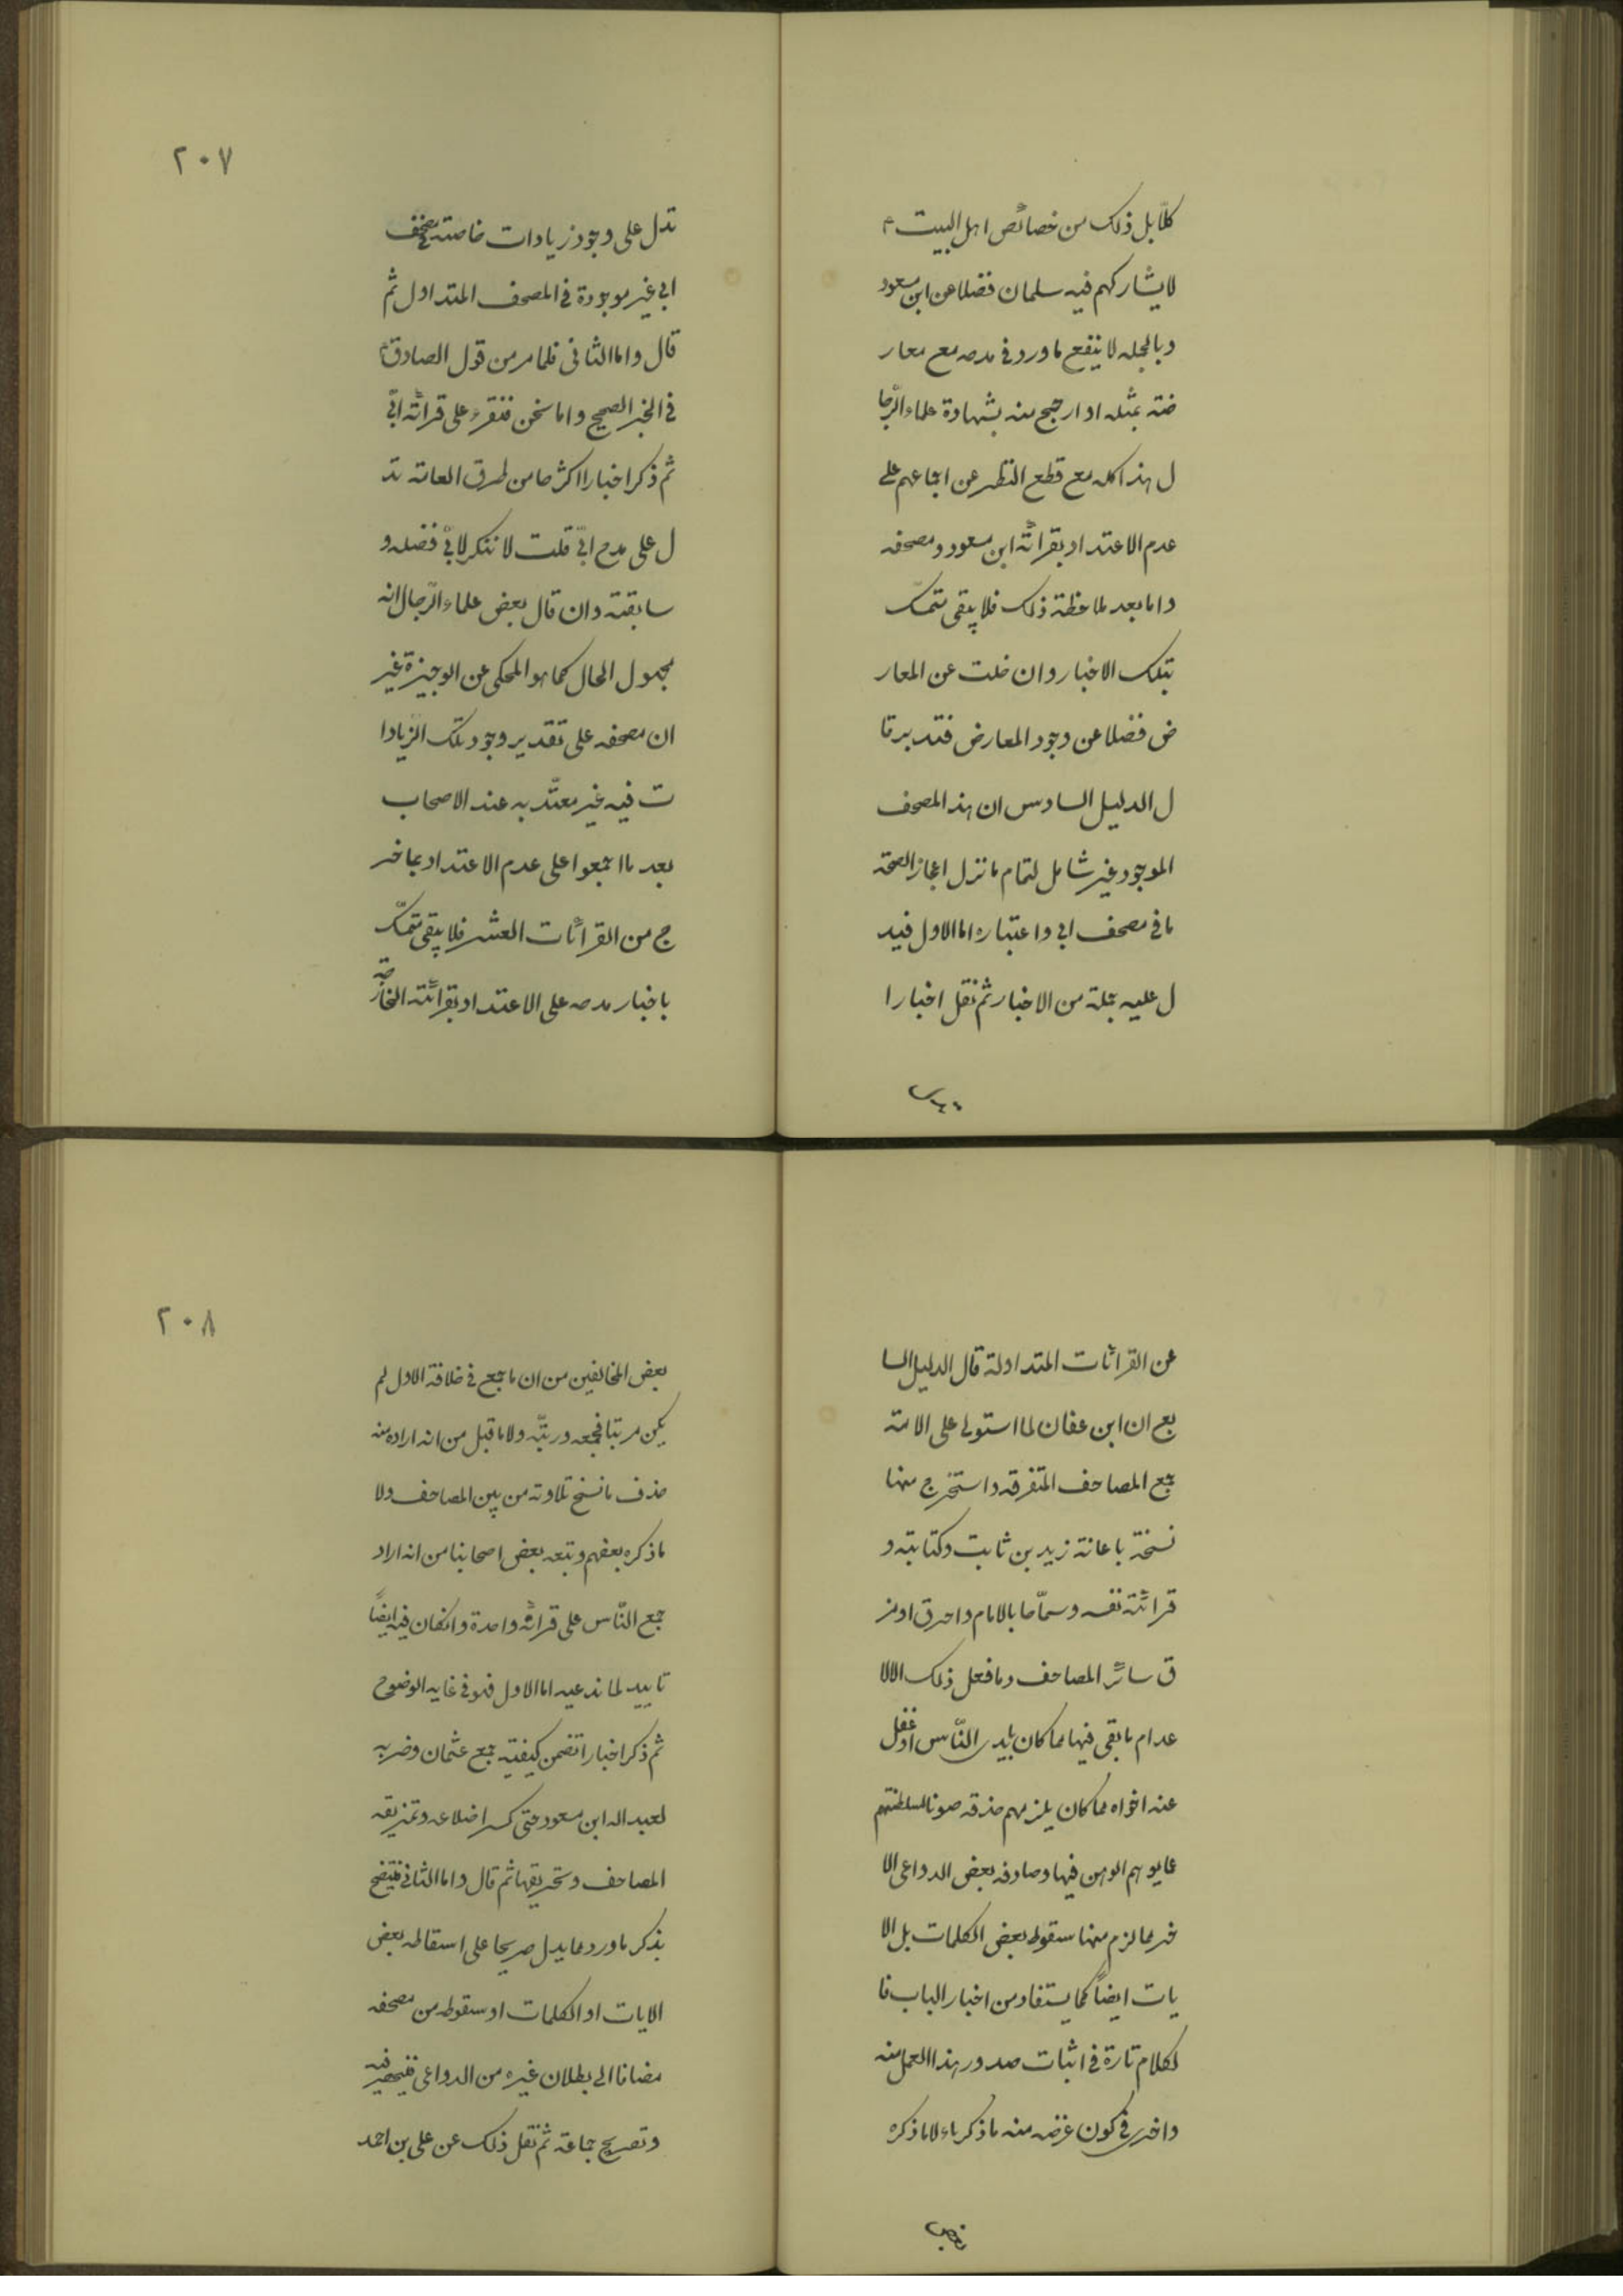 كلّا بل ذلك من خصائص اهل البيت ع
لا يشاركهم فيه سلمان فضلا عن ابن مسعود
و بالجمله لا ينفع ما ورد في مدحه مع معار
ضته بمثله او ارجح منه بشهادة علماء الرّجا
ل هذا كله مع قطع النظر عن اجماعهم على
عدم الاعتداد بقرائة ابن مسعود و مصحفه
و اما بعد ملاحظة ذلك فلا يبقى متمسّك
بتلك الاخبار و ان خلت عن المعار
ض فضلا عن وجود المعارض فتدبر قا
ل الدليل السادس ان هذ المصحف
الموجود غير شامل لتمام ما نزل اعجازا لصحّة
ما في مصحف ابي و اعتباره اما الاول فيد
ل عليه جملة من الاخبار ثم نقل اخبارا
٢٠٧
تدل على وجود زيادات خاصة في مصحف
ابي غير موجودة في المصحف المتداول ثم
قال و اما الثاني فلما مر من قول الصادق ع
في الخبر الصحيح و اما نحن فنقرء على قرائة ابيّ
ثم ذكر اخبارا اكثرها من طرق العامة تد
ل على مدح ابيّ قلت لا ننكر لابيّ فضله و
سابقته و ان قال بعض علماء الرّجال انه
مجهول الحال كما هو المحكى عن الوجيزة غير
ان مصحفه على تقدير وجود تلك الزيادا
ت فيه غير معتّد به عند الاصحاب
بعد ما اجمعوا على عدم الاعتداد بما خر
ج من القرائات العشر فلا يبقى متمسّك
باخبار مدحه على الاعتداد بقرائته الخارجة
عن القرائات المتداولة قال الدليل السا
بع ان ابن عفان لما استولى على الامة
جمع المصاحف المتفرقة و استخرج منها
نسخة باعانة زيد بن ثابت و كتابته و
قرائته نفسه و سمّاها بالامام و احرق او مز
ق سائر المصاحف و ما فعل ذلك الا لا
عدام ما بقى فيها مما كان بايدى النّاس او غفل
عنه اخواه مما كان يلزمهم حذفه صونا لسلطنتهم
عما يوهم الوهن فيها و صادفه بعض الدواعى الا
خر مما لزم منها سقوط بعض الكلمات بل الا
يات ايضاً كما يستفاد من اخبار الباب فا
لكلام تارة في اثبات صدور هذا العمل منه
و اخرى في كون غرضه منه ما ذكرناه لا ما ذكره
بعض
٢٠٨
بعض المخالفين من ان ما جمع في خلافة الاول لم
يكن مرتبا فجمعه و رتبّه و لا ما قيل من انه اراد منه
حذف ما نسخ تلاوته من بين المصاحف و لا
ما ذكره بعضهم و تبعه بعض اصحابنا من انه اراد
جمع النّاس على قرائة واحدة و ان كان فيه ايضاً
تاييد لما ندعيه اما الاول فهو في غايه الوضوح
ثم ذكر اخبارا تضمن كيفيّه جمع عثمان و ضربه
لعبد اله ابن مسعود حتى كسر اضلاعه و تمزيقه
المصاحف و تحريقها ثم قال و اما الثاني فيتضح
بذكر ما ورد مما يدل صريحا على اسقاطه بعض
الايات او الكلمات او سقوطه من مصحفه
مضافا الى بطلان غيره من الدواعى فينحصر فيه
و تصريح جماعة ثم نقل ذلك عن على بن احمد